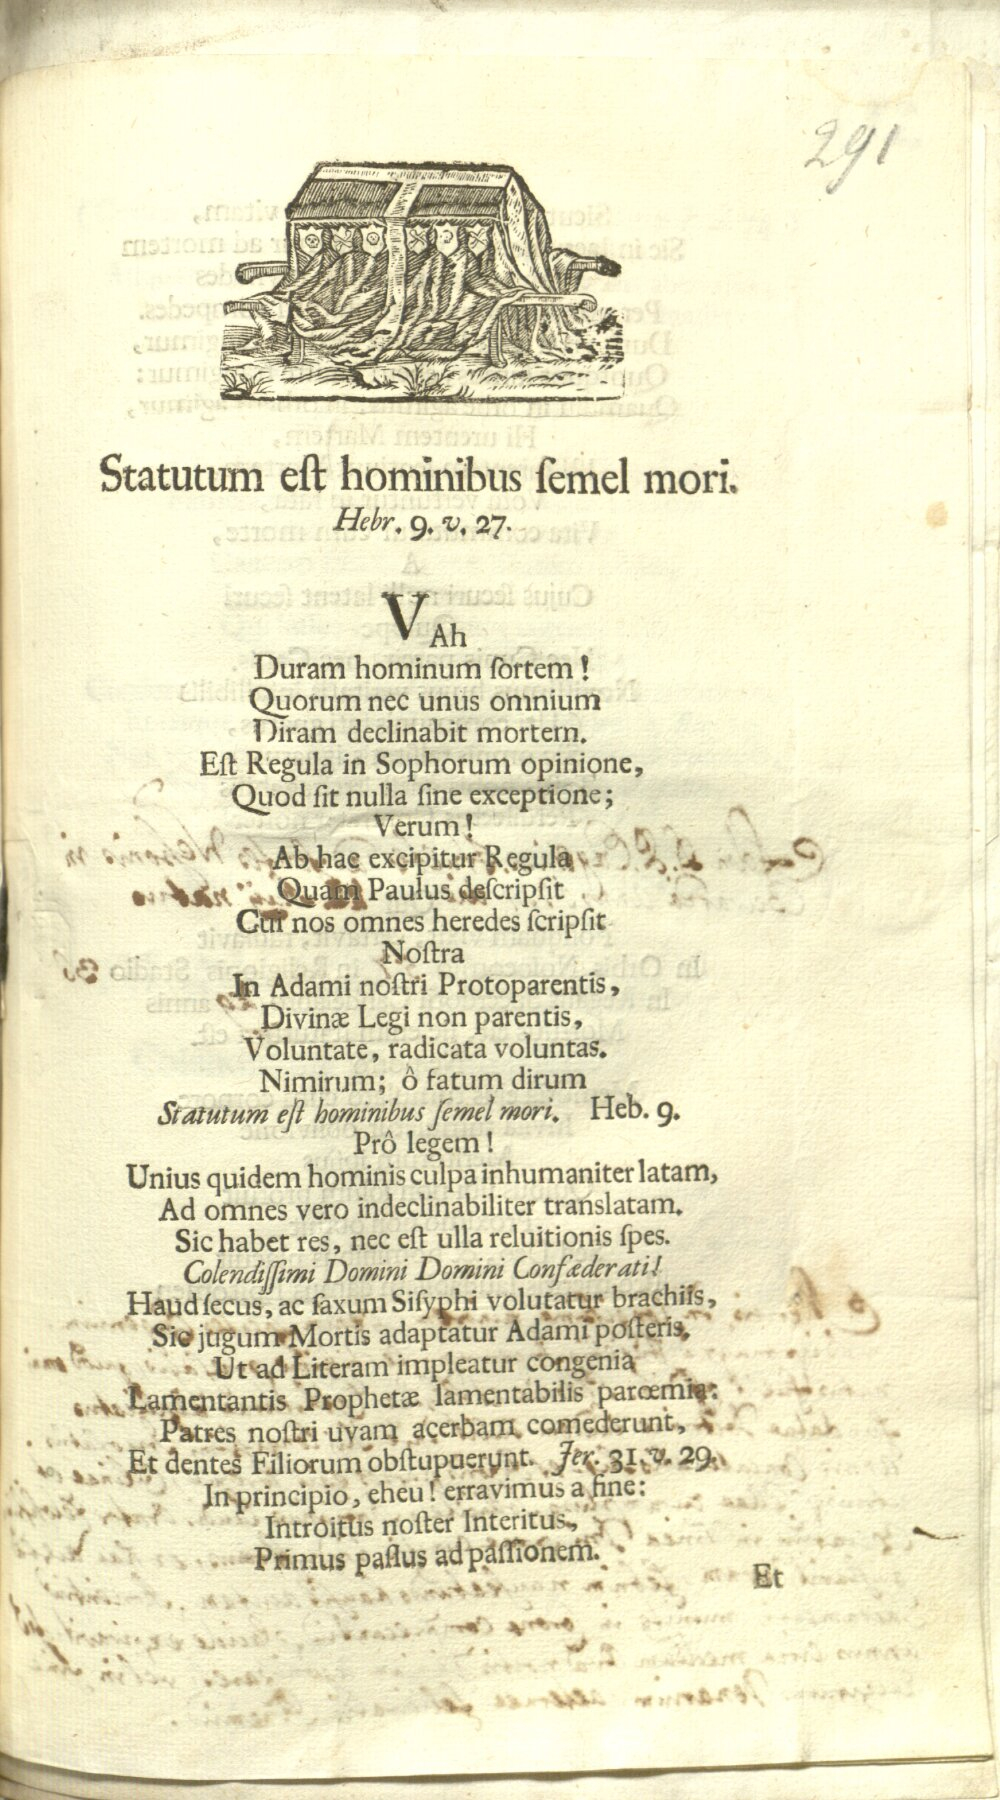 291
Statutum eſt hominibus ſemel mori.
Hebr. 9. v. 27.
VAh
Duram hominum ſortem!
Quorum nec unus omnium
Diram declinabit mortem.
Eſt Regula in Sophorum opinione,
Quod ſit nulla ſine exceptione;
Verum!
Ab hac excipitur Regula
Quam Paulus deſcripſit
Cui nos omnes heredes ſcripſit
Noſtra
In Adami noſtri Protoparentis,
Divinæ Legi non parentis,
Voluntate, radicata voluntas.
Nimirum; ô fatum dirum
Statutum eſt hominibus ſemel mori. Heb. 9.
Prô legem!
Unius quidem hominis culpa inhumaniter latam,
Ad omnes vero indeclinabiliter translatam.
Sic habet res, nec eſt ulla reluitionis ſpes.
Colendiſſimi Domini Domini Confæderati!
Haud ſecus, ac ſaxum Siſyphi volutatur brachiis,
Sic jugum Mortis adaptatur Adami poſteris.
Ut ad Literam impleatur congenia
Lamentantis Prophetæ lamentabilis parœmia:
Patres noſtri uvam acerbam comederunt,
Et dentes Filiorum obſtupuerunt. Jer. 31. v. 29.
In principio, eheu! erravimus a fine:
Introitus noſter Interitus,
Primus paſſus ad paſſionem.
Et